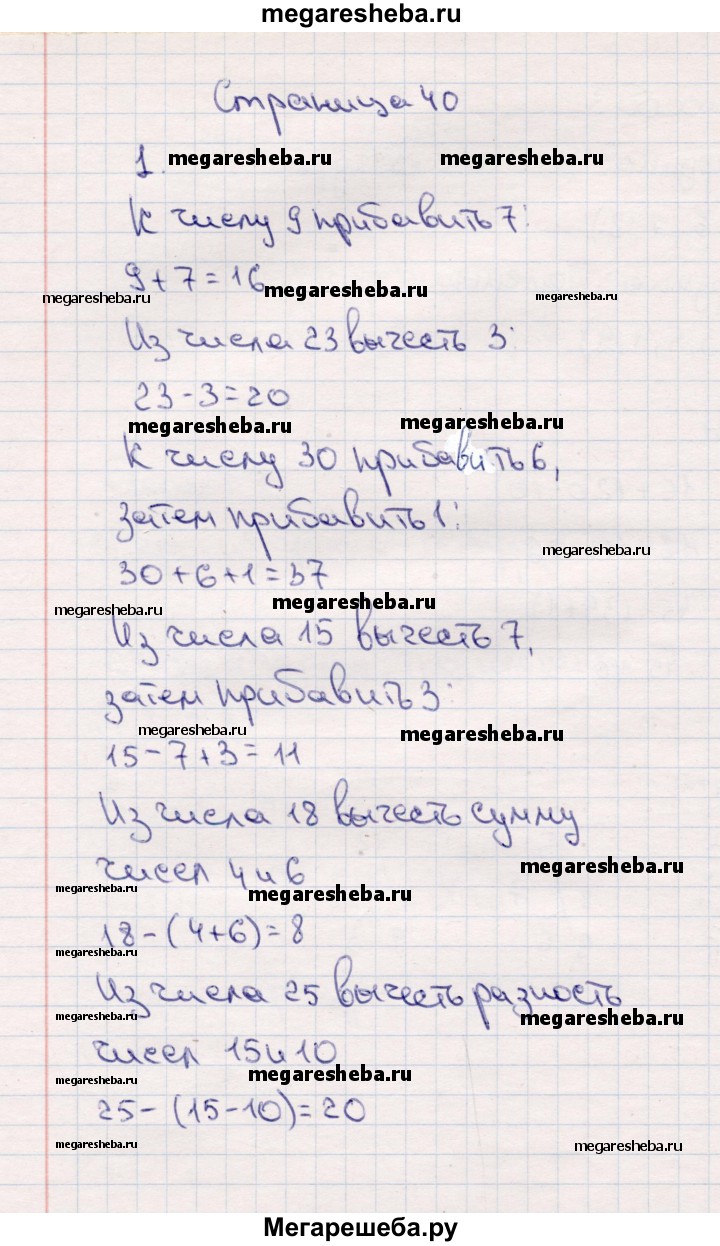 megaresheba.ru
Страница 40
1.
megaresheba.ru megaresheba.ru
К числу 9 прибавить 7:
9+7=16
megaresheba.ru megaresheba.ru megaresheba.ru
Из числа 23 вычесть 3:
23-3=20
megaresheba.ru megaresheba.ru
К числу 30 прибавить 6,
затем прибавить 1:
megaresheba.ru
30+6+1=37
megaresheba.ru megaresheba.ru
Из числа 15 вычесть 7,
затем прибавить 3:
megaresheba.ru megaresheba.ru
15-7+3=11
Из числа 18 вычесть сумму
чисел 4 и 6
megaresheba.ru megaresheba.ru megaresheba.ru
18-(4+6)=8
megaresheba.ru
Из числа 25 вычесть разность
megaresheba.ru megaresheba.ru
чисел 15 и 10
megaresheba.ru megaresheba.ru
25-(15-10)=20
megaresheba.ru megaresheba.ru
Мегарешеба.ру